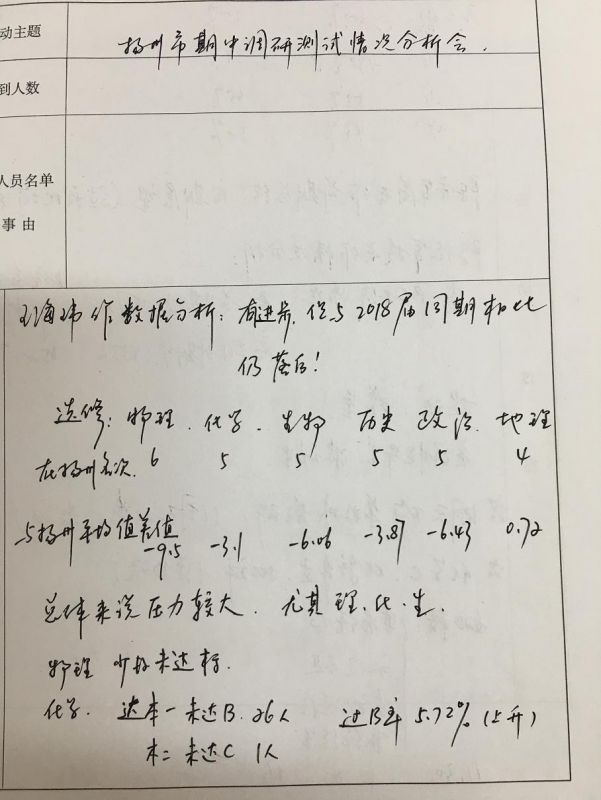 动主题
扬州市期中调研测试情况分析会.
到人数
人员名单
事由
王海玮作数据分析:有进步,但与2018届同期相比
仍落后!
选修:物理、化学、生物 历史 政治、地理
在扬州名次. 6 5 5 5 5 4
与扬州平均值差值
-9.5 -3.1 -6.06 -3.87 -6.43 0.72
总体来说压力较大.尤其理.化.生.
物理 未达标.
化学. 达本一未达B.26人 过B率5.72%(上升)
本二未达C 1人